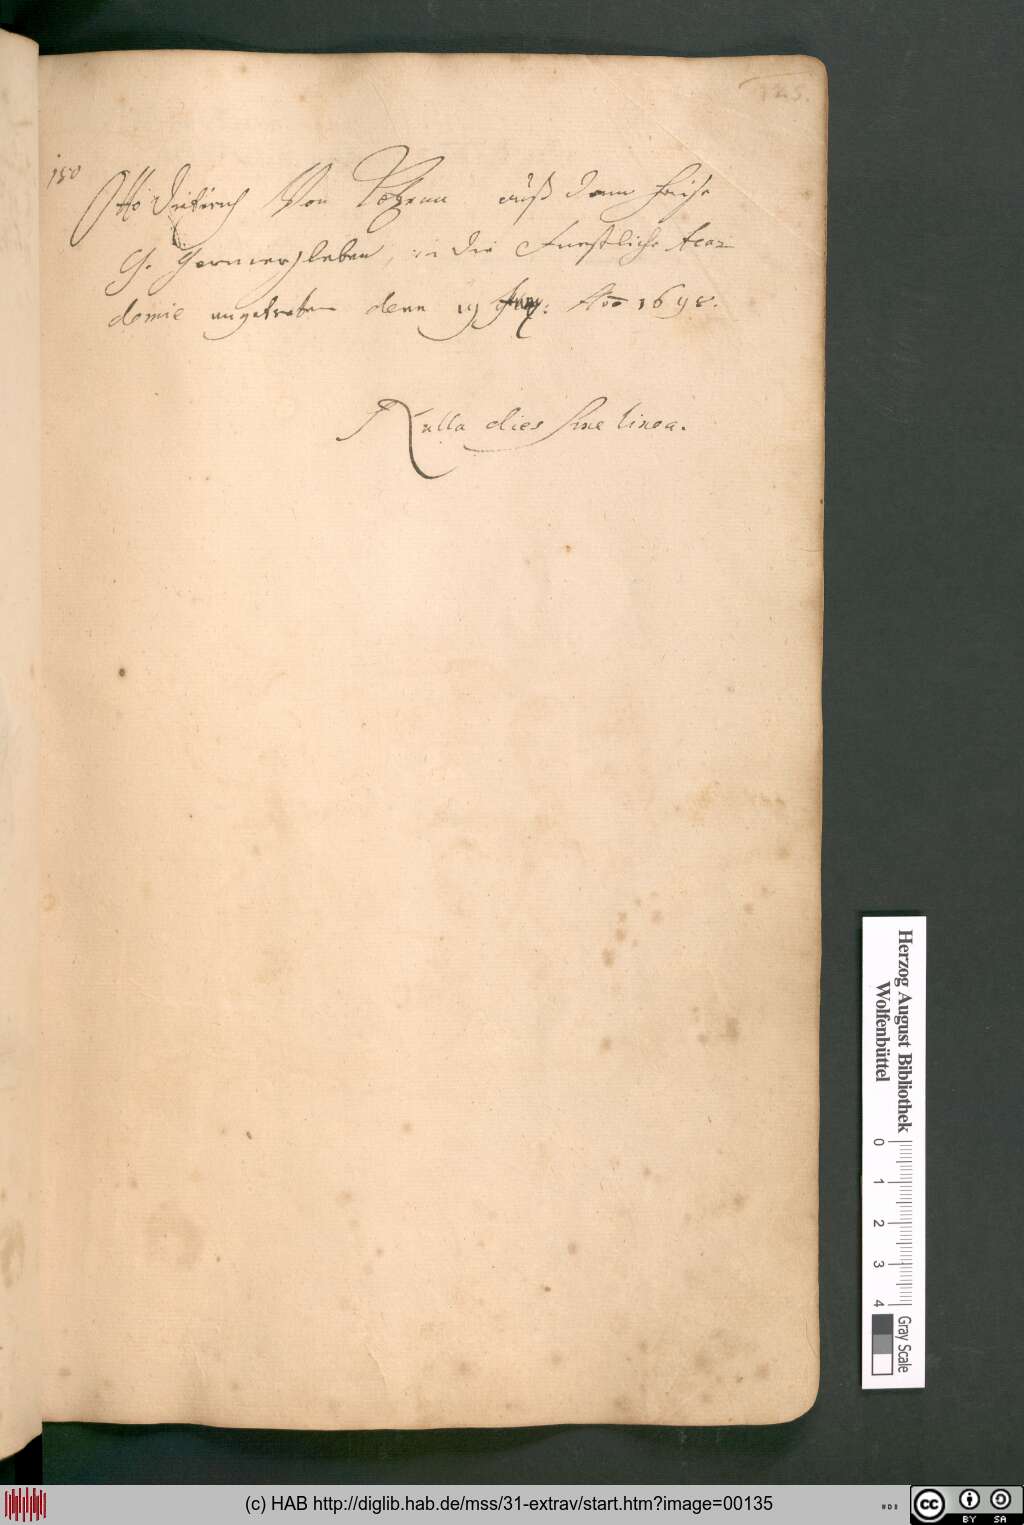 125.
150
Otto Dieterich Von auß dem Hause
G. Germersleben, in die Furstliche Aca-
demie angetreten denn 19 Aõo 1698.
Nulla dies sine linea.
Herzog August Bibliothek
Wolfenbüttel
0 1 2 3 4
Gray Scale
(c) HAB http://diglib.hab.de/mss/31-extrav/start.htm?image=00135
cc BY SA